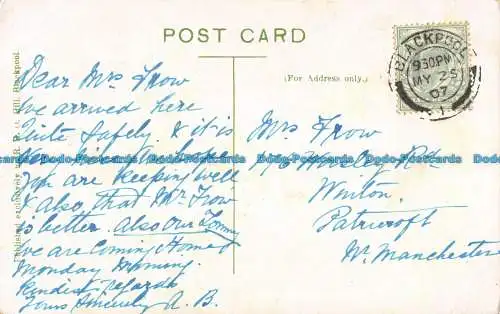 POST CARD
(For Address only.)
BLACKPOOL
9 30 PM
MY 25
07
Dear Mrs Frow
We arrived here
Quite Safely. & it is
you are keeping well
& also, that Mr Frow
is better. also our Tommy
we are Coming Home
Monday Morning.
kindest regards
Yours Sincerely A. B.
Mrs Frow
Rd
Winton
Patricroft
Nr. Manchester
Postcards Postcards Postcards Postcards Postcards